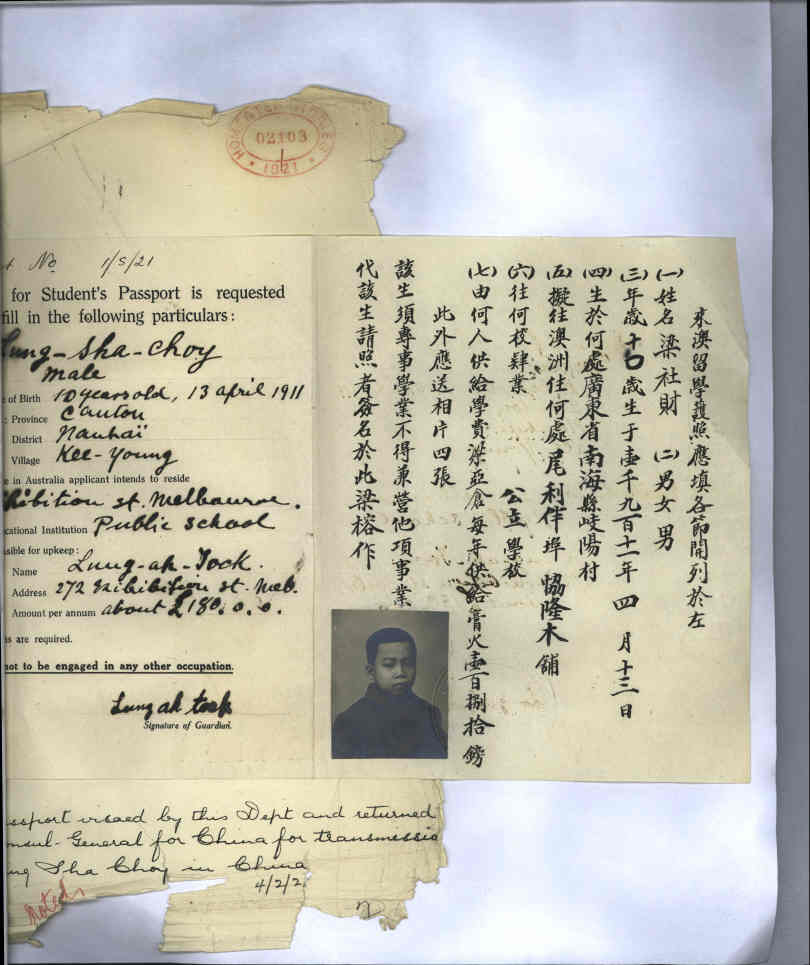 HOME &
02103
1921
No 1/5/21
for Student's Passport is requested
fill in the following particulars:
Lung-Sha-Choy
male
of Birth 10 years old, 13 april 1911
Province Canton
District Nanhaï
Village Kee-Young
in Australia applicant intends to reside
hibition st. Melbourne.
cational Institution Public School
sible for upkeep:
Name Lung-ah-Tock.
Address 272 Exhibition st. Mel.
Amount per annum about £180.0.0.
are required.
not to be engaged in any other occupation.
Lung ah tock
Signature of Guardian.
來澳留學護照應填各節開列於左
(一)姓名梁社財 (二)男女 男
(三)年歲十〇歲生于壹千九百十一年四月十三日
(四)生於何處廣東省南海縣岐陽村
(五)擬往澳洲住何處尾利伴埠 協隆木舖
(六)往何校肆業 公立學校
(七)由何人供給學費梁亞倉每年供給膏火壹百捌拾鎊
此外應送相片四張
該生須專事學業不得兼營他項事業
代該生請照者簽名於此梁榕作
ssport visaed by this Dept and returned
nsul-General for China for transmissio
ng Sha Choy in China
4/2/2
Noted